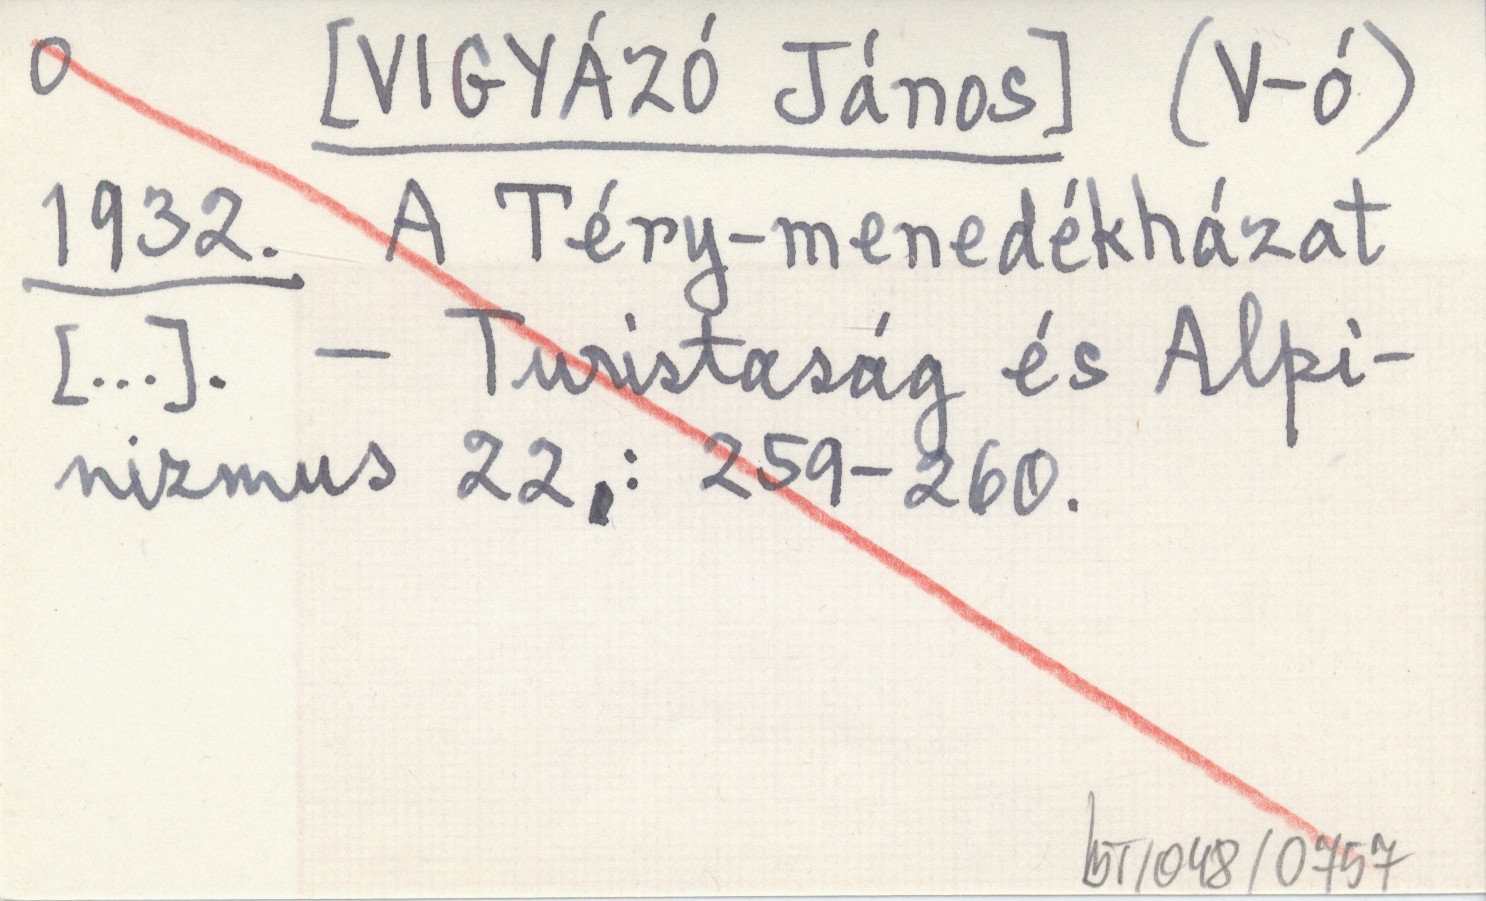 O [VIGYÁZÓ János] (V-ó)
1932. A Téry-menedékházat
[...]. — Turistaság és Alpi-
nizmus 22,: 259-260.
bT/048/0757